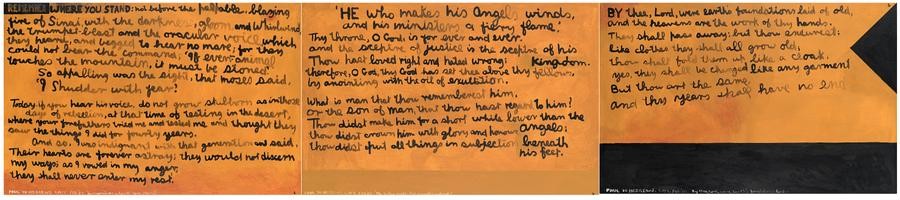 REMEMBER WHERE YOU STAND: not before the palpable, blazing
fire of Sinai, with the darkness, gloom and whirlwind,
the trumpet-blast and the oracular voice which
they heard, and begged to hear no more; for they
could not bear the command, 'If even an animal
touches the mountain, it must be stoned.'
So appalling was the sight, that Moses said,
'I shudder with fear!'
Today, if you hear his voice, do not grow stubborn as in those
days of rebellion, at that time of testing in the desert,
where your forefathers tried me and tested me and thought they
saw the things I did for fourty years.
And so, I was indignant with that generation and said,
Their hearts are forever astray; they would not discern
my ways; as I vowed in my anger,
they shall never enter my rest.
'HE who makes his Angels winds,
and his ministers a fiery flame.'
Thy throne, O God, is for ever and ever.
and the sceptre of justice is the sceptre of his
kingdom.
Thou hast loved right and hated wrong;
therefore, O God, thy God has set thee above thy fellows,
by anointing with the oil of exultation.
What is man that thou rememberest him,
or the son of man, that thou hast regard to him?
Thou didst make him for a short while lower than the
angels;
thou didst crown him with glory and honour
thou didst put all things in subjection beneath
his feet.
BY thee, Lord, were earths foundations laid of old,
and the heavens are the work of thy hands.
They shall pass away; but thou endurest:
like clothes they shall all grow old;
thou shalt fold them up like a cloak,
yes, they shall be changed like any garment
But thou art the same
and thy years shall have no end